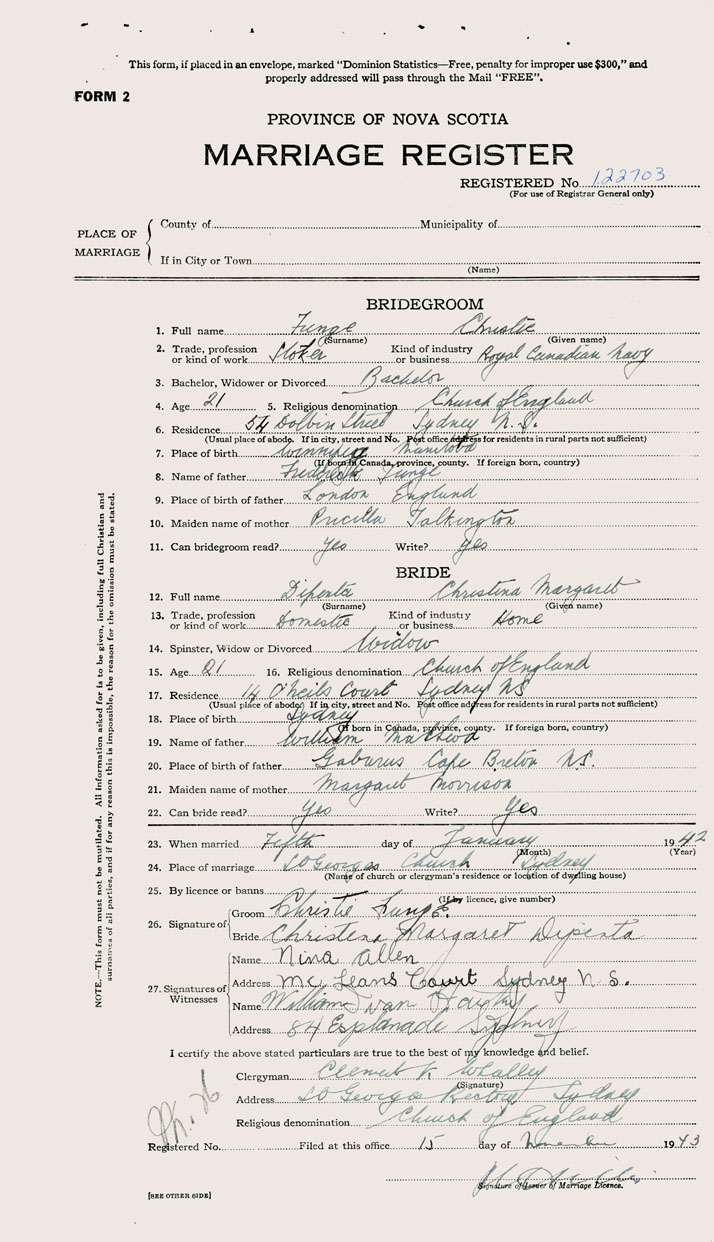 This form, if placed in an envelope, marked "Dominion Statistics—Free, penalty for improper use $300," and
properly addressed will pass through the Mail "FREE".
FORM 2
PROVINCE OF NOVA SCOTIA
MARRIAGE REGISTER
REGISTERED No. 122703
(For use of Registrar General only)
PLACE OF MARRIAGE
County of Municipality of
If in City or Town
(Name)
BRIDEGROOM
1. Full name Funge Christie
(Surname) (Given name)
2. Trade, profession or kind of work Stoker Kind of industry or business Royal Canadian Navy
3. Bachelor, Widower or Divorced Bachelor
4. Age 21 5. Religious denomination Church of England
6. Residence 54 Dolbin Street Sydney N.S.
(Usual place of abode. If in city, street and No. Post office address for residents in rural parts not sufficient)
7. Place of birth Winnipeg Manitoba
(If born in Canada, province, county. If foreign born, country)
8. Name of father Frederick Funge
9. Place of birth of father London England
10. Maiden name of mother Pricilla Talkington
11. Can bridegroom read? Yes Write? Yes
BRIDE
12. Full name Dipenta Christena Margaret
(Surname) (Given name)
13. Trade, profession or kind of work Domestic Kind of industry or business Home
14. Spinster, Widow or Divorced Widow
15. Age 21 16. Religious denomination Church of England
17. Residence 14 O'Neils Court Sydney NS
(Usual place of abode. If in city, street and No. Post office address for residents in rural parts not sufficient)
18. Place of birth Sydney
(If born in Canada, province, county. If foreign born, country)
19. Name of father William
20. Place of birth of father Gabarus Cape Breton N.S.
21. Maiden name of mother Margaret Morrison
22. Can bride read? Yes Write? Yes
23. When married Fifth day of January 1942
(Month) (Year)
24. Place of marriage St Georges Church Sydney
(Name of church or clergyman's residence or location of dwelling house)
25. By licence or banns
(If by licence, give number)
26. Signature of
Groom Christie Funge
Bride Christena Margaret Dipenta
27. Signatures of Witnesses
Name Nina Allen
Address Mc Leans Court Sydney N.S.
Name William Van
Address 84 Esplanade Sydney
I certify the above stated particulars are true to the best of my knowledge and belief.
Clergyman Clement Whalley
(Signature)
Address St Georges Rectory Sydney
Religious denomination Church of England
Registered No. Filed at this office 15 day of November 1943
Signature of Issuer of Marriage Licence.
[SEE OTHER SIDE]
NOTE.—This form must not be mutilated. All Information asked for is to be given, including full Christian and
surnames of all parties, and if for any reason this is impossible, the reason for the omission must be stated.